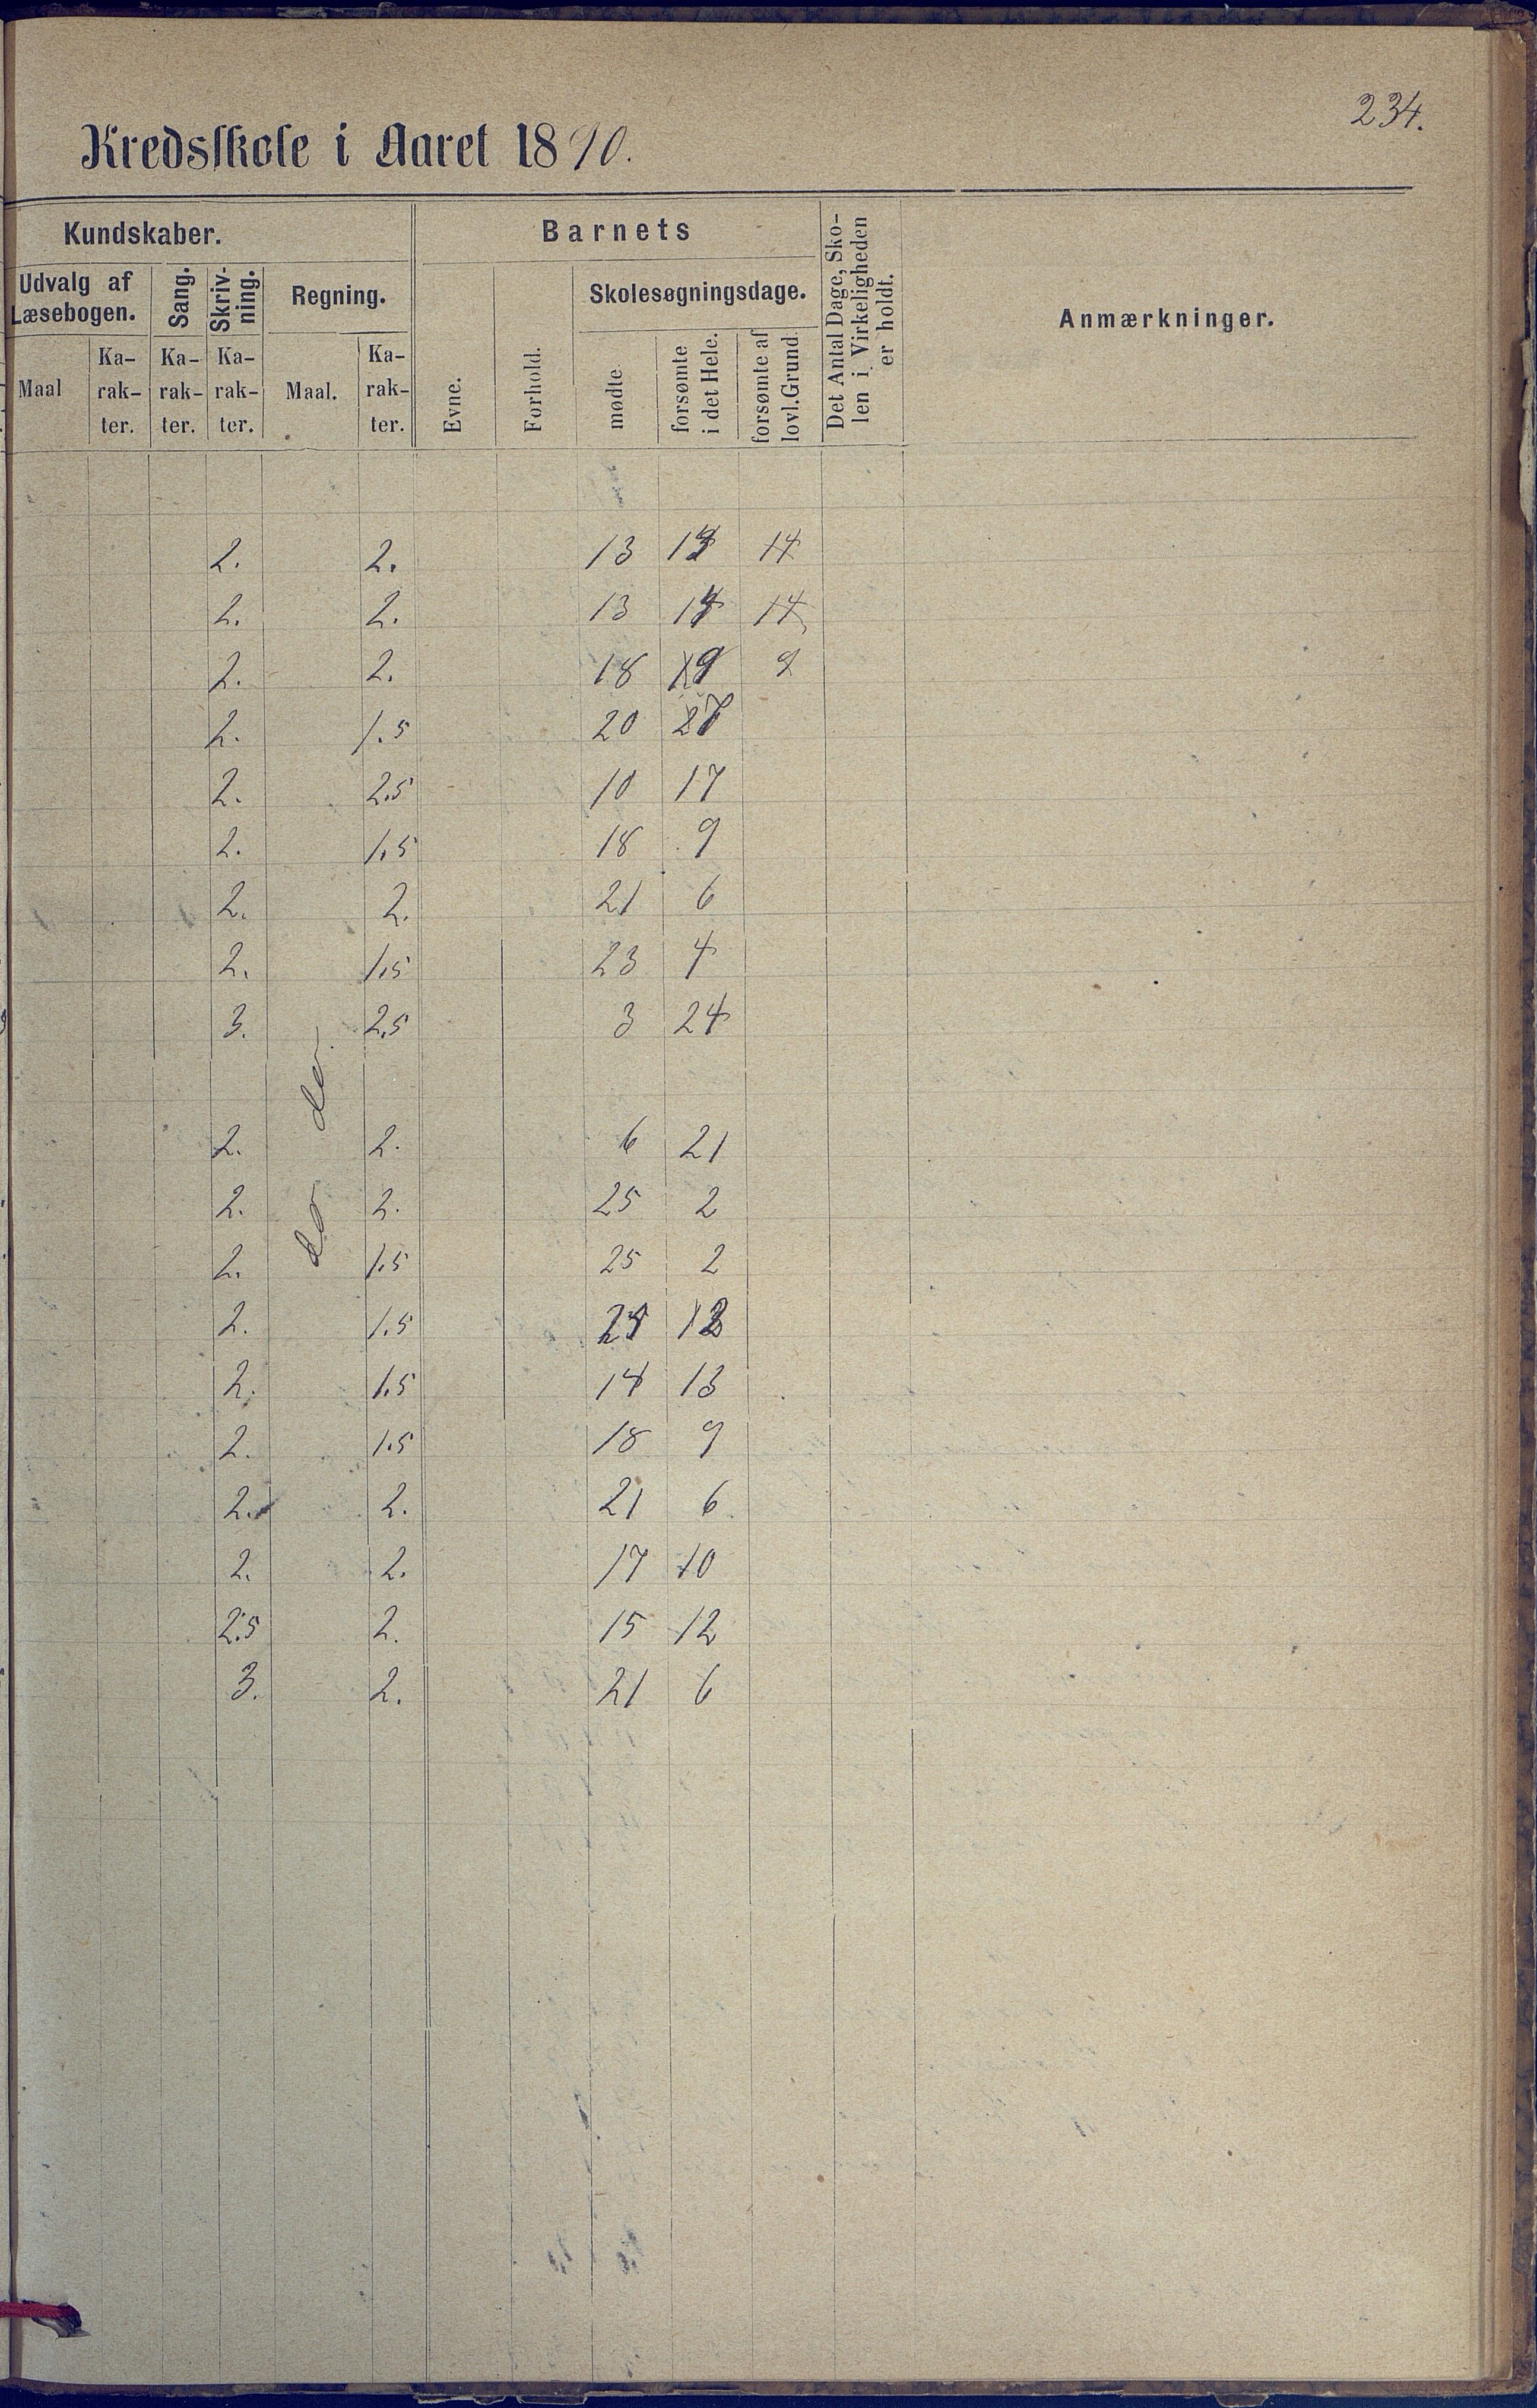 234.
Kredsskole i Aaret 1890.
Kundskaber.
Barnets
Det Antal Dage, Sko-
len i Virkeligheden
er holdt.
Anmærkninger.
Udvalg af
Læsebogen.
Sang.
Skriv-
ning.
Regning.
Evne.
Forhold.
Skolesøgningsdage.
Maal
Ka-
rak-
ter.
Ka-
rak-
ter.
Ka-
rak-
ter.
Maal.
Ka-
rak-
ter.
mødte
forsømte
i det Hele.
forsømte af
lovl. Grund
2. 2. 13 14
2. 2. 13 14 14
2. 2. 18 9 9
2. 1.5 20 7
2. 2.5 10 17
2. 1.5 18 9
2. 2. 21 6
2. 1.5 23 4
3. 2.5 3 24
2. 2. 6 21
2. 2. 25 2
2. 1.5 25 2
2. 1.5
2. 1.5 14 13
2. 1.5 18 9
2. 2. 21 6
2. 2. 17 10
2.5 2. 15 12
3. 2. 21 6